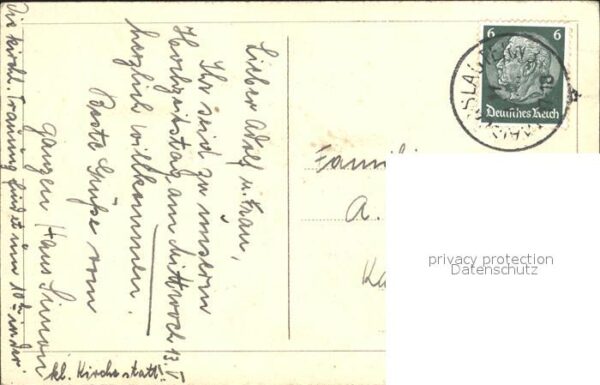 Lieber Adolf u. Frau,
Ihr seid zu unserm
Hochzeitstag am Mittwoch 13. V
herzlich willkommen.
Beste Grüße vom
ganzen Haus Simon
Die kirchl. Trauung findet um 10 h in der
kl. Kirche statt!
6 6
Deutsches Reich
Famili
A.
Ka
privacy protection
Datenschutz